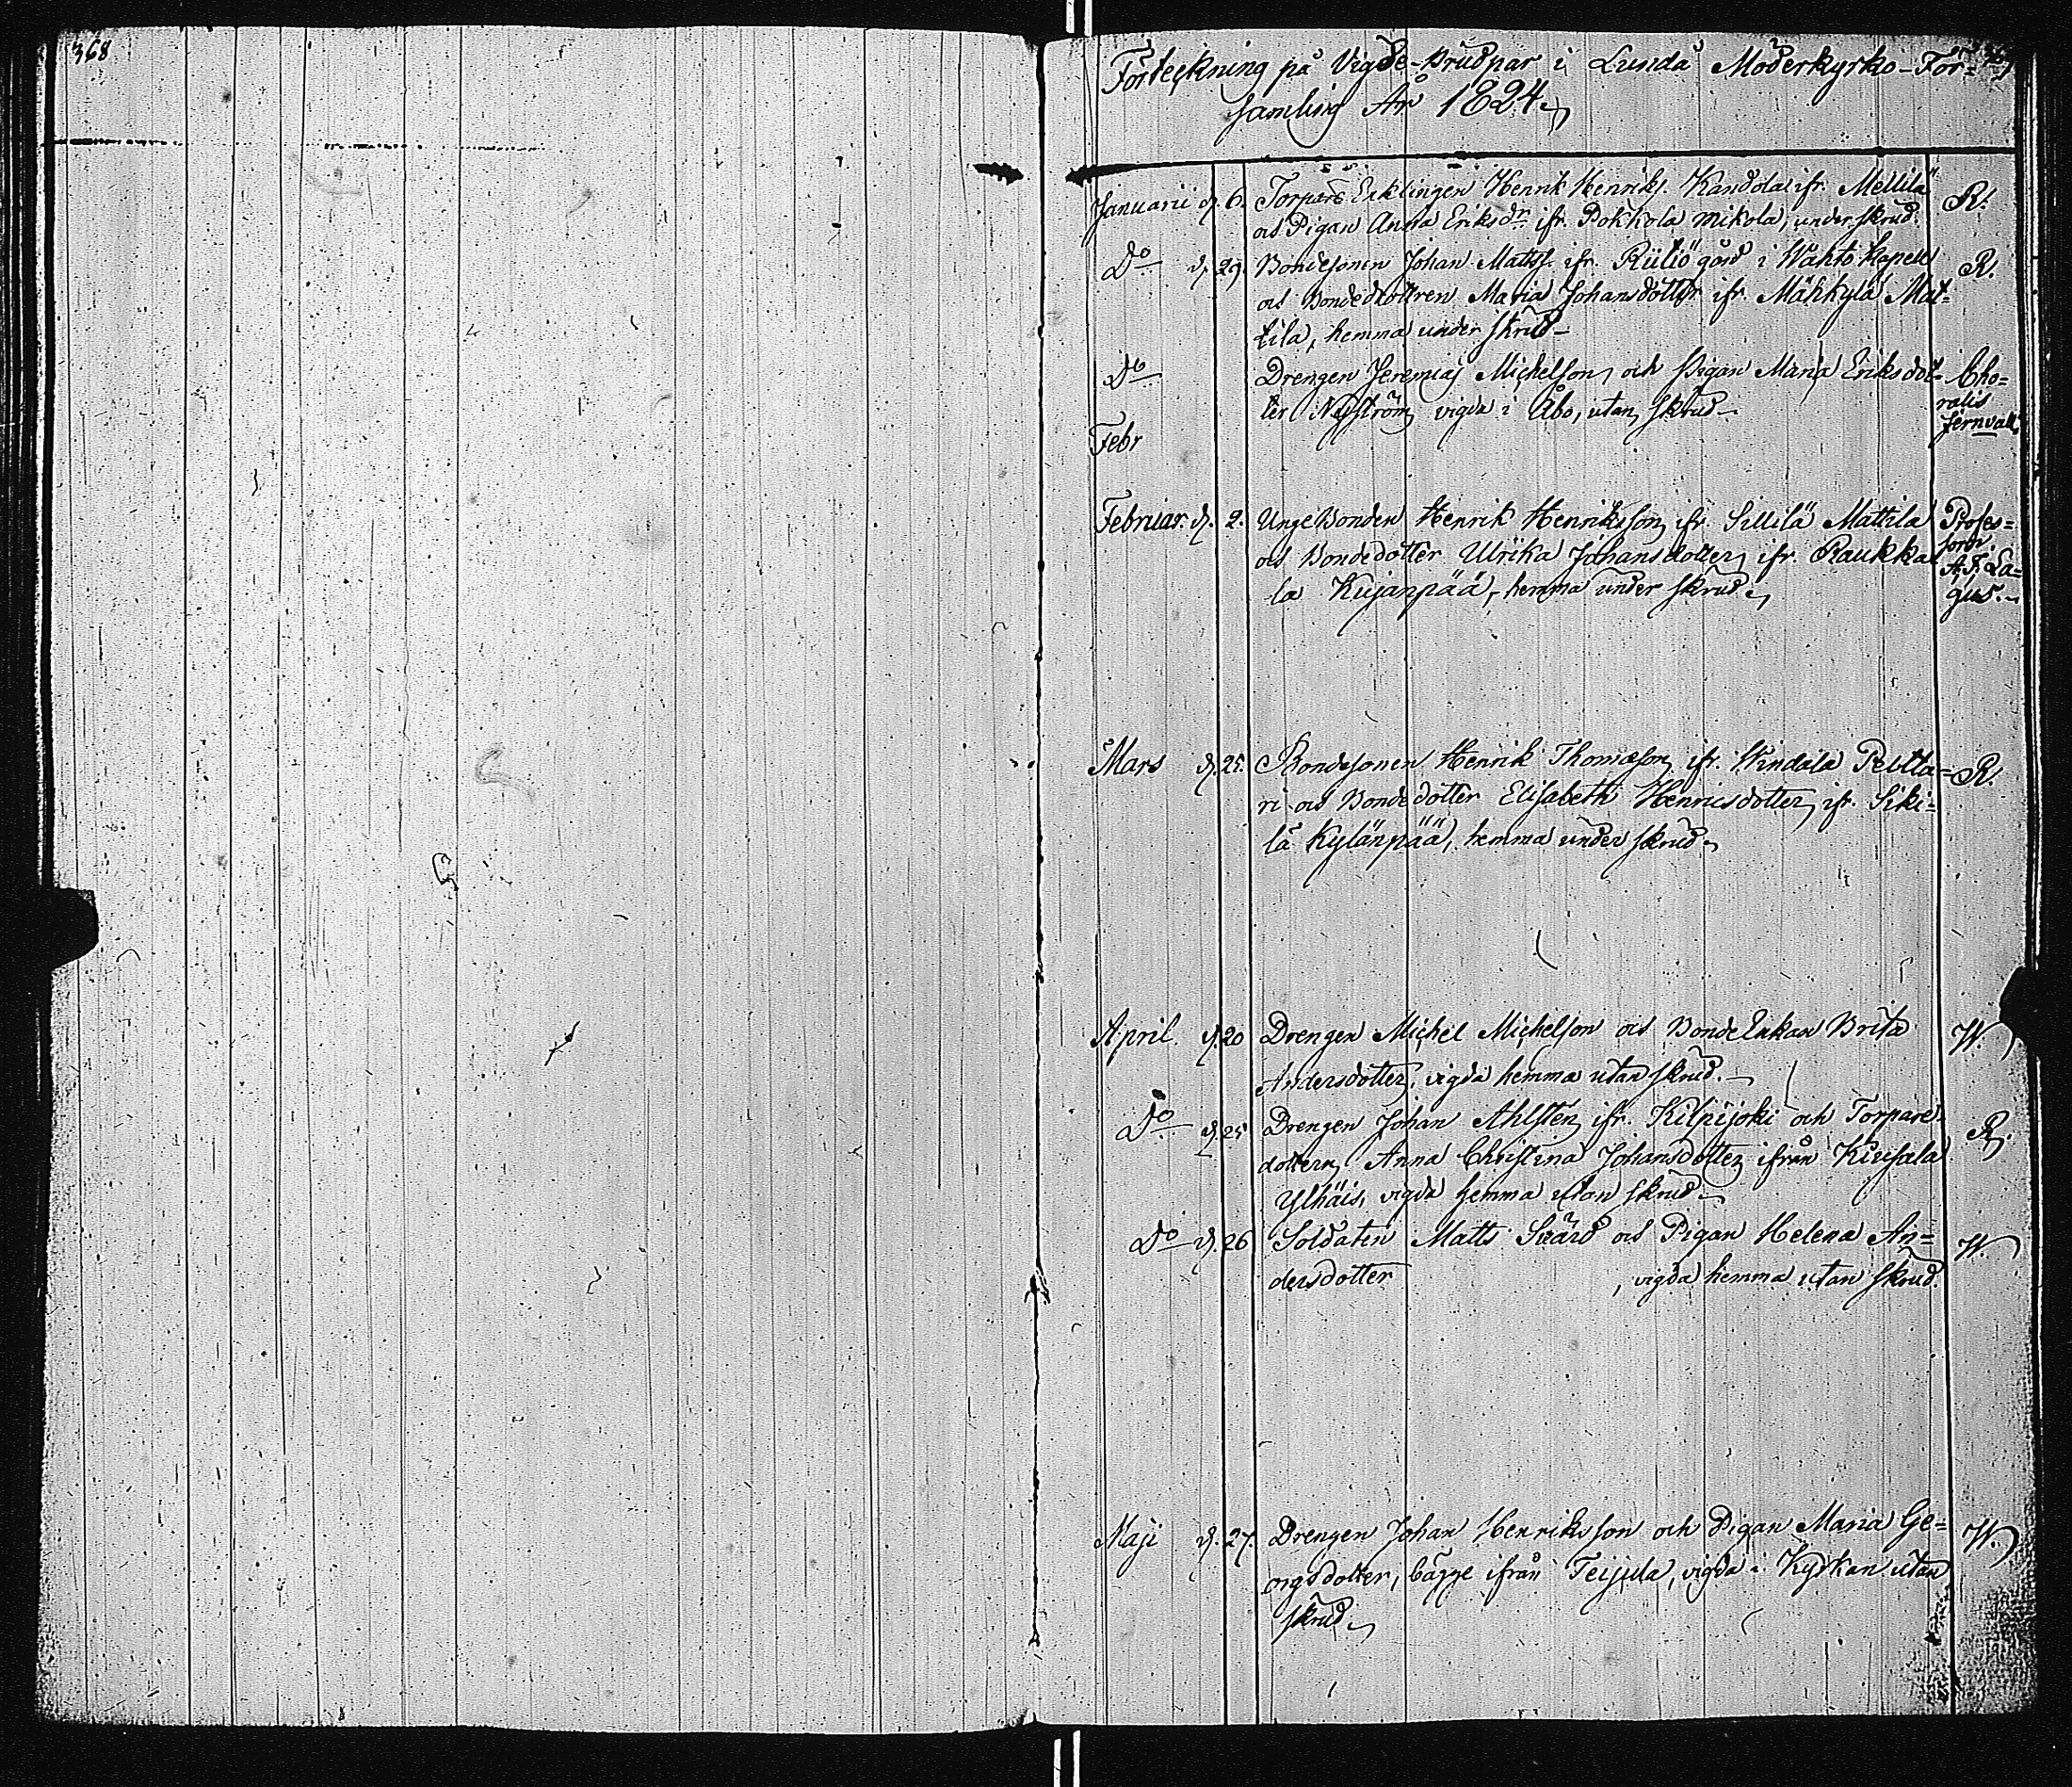 368
Förteckning på Vigde-Brudpar i Lundå Moderkyrko-För=
samling År 1824.
Januarii d. 6. Torpare Enklingen Henrik Henriks. Kandola ifr. Mellilä R.
och Pigan Anna Eriksdr. ifr. Pokkola Mikola, under skrud.
Do d. 29. Bondesonen Johan Matts. ifr. Riiliö gård i Wahto Kapell R.
och Bondedottren Maria Johansdotter ifr. Mähkylä Mat=
tila, hemma under skrud
Do Drengen Jeremias Michelson och Pigan Maria Eriksdot= Cho=
ter Nyström vigda i Åbo, utan skrud ralis
Jernvall.
Febr
Februar. d. 2. Unge Bonden Henrik Henriksson ifr. Sillilä Mattila Profes=
och Bondedotter Ulrika Johansdotter ifr. Raukka sorn
A. J. La=
la Kujanpää, hemma under skrud. gus.
Mars d. 25. Bondesonen Henrik Thomasson ifr. Windala Peltta= R.
ri och Bondedotter Elisabeth Henricsdotter ifr. Siki=
lä Kylänpää, hemma under skrud.
April. d. 20 Drengen Michel Michelson och Bonde Enkan Brita W.
Andersdotter, vigda hemma utan skrud.
Do d. 25 Drengen Johan Ahlsten ifr. Kilpijoki och Torpare R.
dottern Anna Christina Johansdotter ifrån Kiusala
Ylhäis, vigda hemma utan skrud.
Do d. 26 Soldaten Matts Svärd och Pigan Helena An= W.
dersdotter , vigda hemma utan skrud.
Maji d. 27. Drengen Johan Henriksson och Pigan Maria Ge= W.
orgsdotter, bägge ifrån Teijula, vigda i Kyrkan utan
skrud.